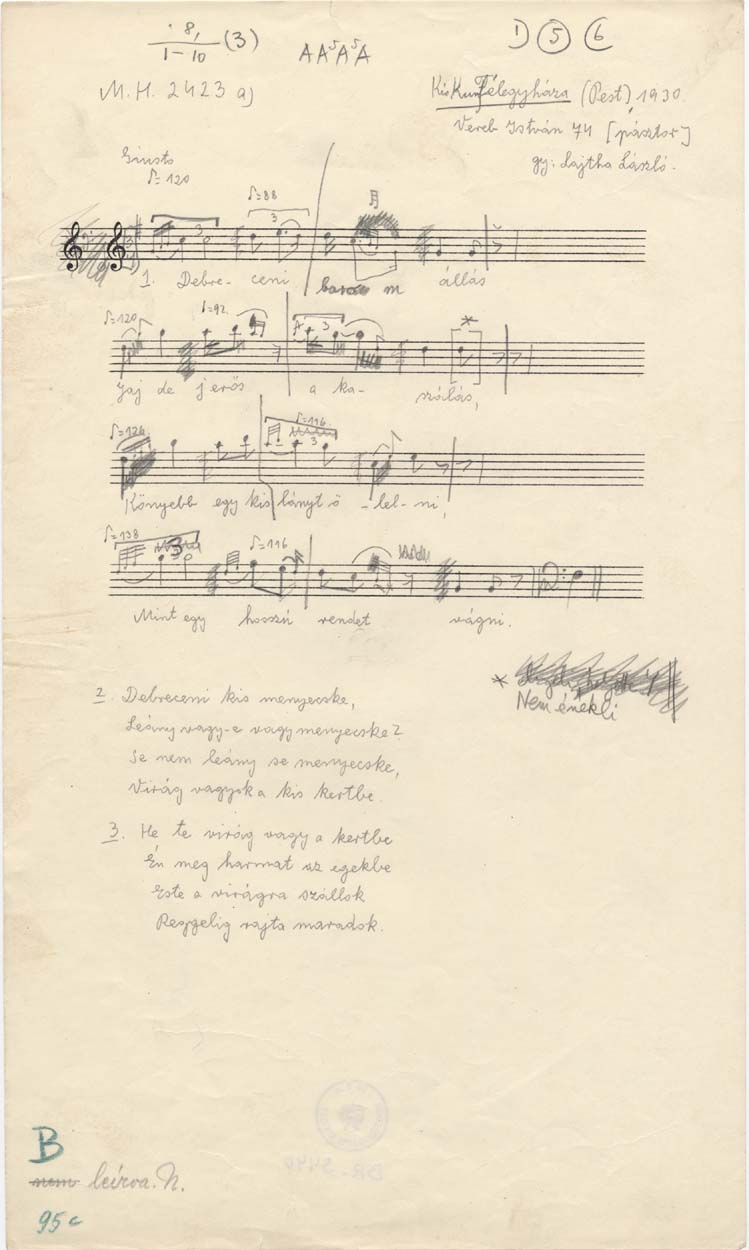 8,
1-10 (3)
A A⁵ A⁵ A
1) 5 6
M.H. 2423 a)
KisKunFélegyháza (Pest), 1930.
Vereb István 74 [pásztor]
gy: Lajtha László.
Giusto
♪=120
♪=88
3 3
1. Debre- ceni m állás
♪=120 ♪=92
3 *
Jaj de j erős a ka- szálás,
♪=126 ♪=116
3
Könyebb egy kis lányt ö -lel- ni,
♪=138 ♪=116
3
Mint egy hosszú rendet vágni.
*
Nem énekli
2. Debreceni kis menyecske,
Leány vagy-e vagy menyecske?
Se nem leány se menyecske,
Virág vagyok a kis kertbe.
3. He te virág vagy a kertbe
Én meg harmat az egekbe
Este a virágra szállok
Reggelig rajta maradok.
B
nem leírva. N.
95c